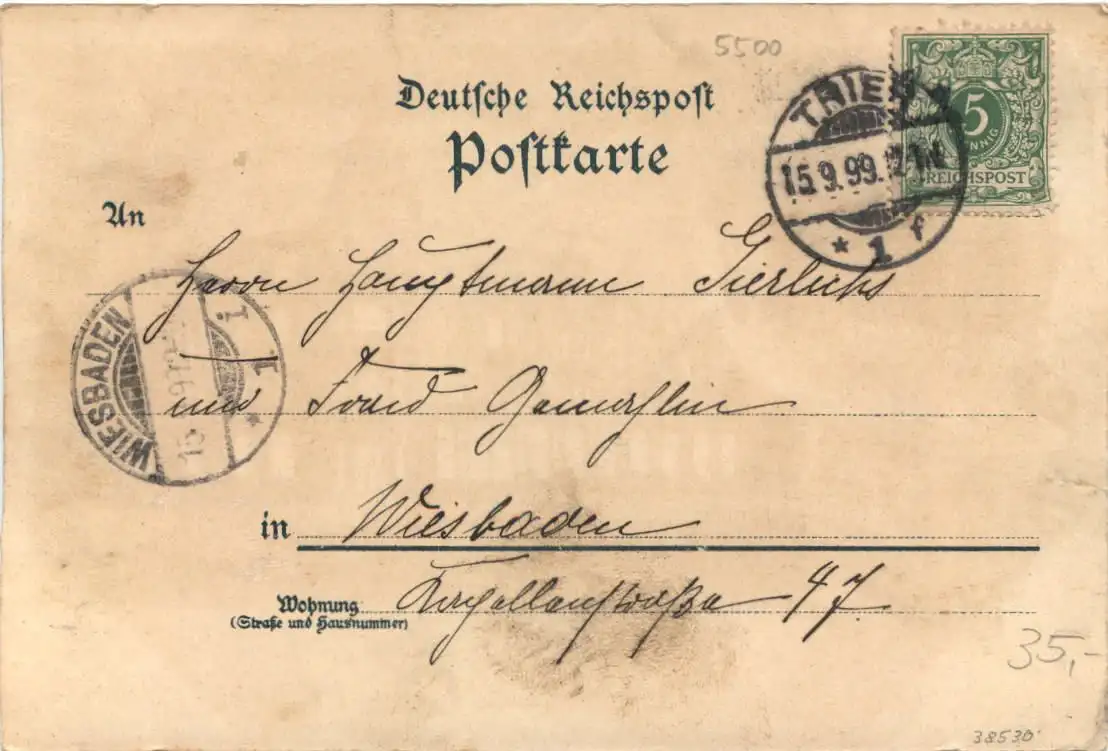 5500
Deutsche Reichspost
Postkarte
TRIER
15.9.99.
* 1 f
5
PFENNIG
REICHSPOST
An
Herrn Hauptmann Gierlichs
und Frau Gemahlin
WIESBADEN
1 i
in Wiesbaden
Wohnung Kapellenstraße 47
(Straße und Hausnummer)
35,-
38530